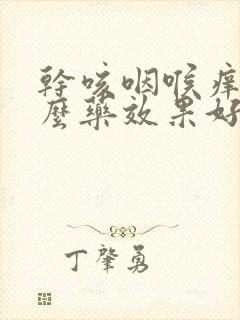 幹咳咽喉痒
麼藥效果好
丁肇勇